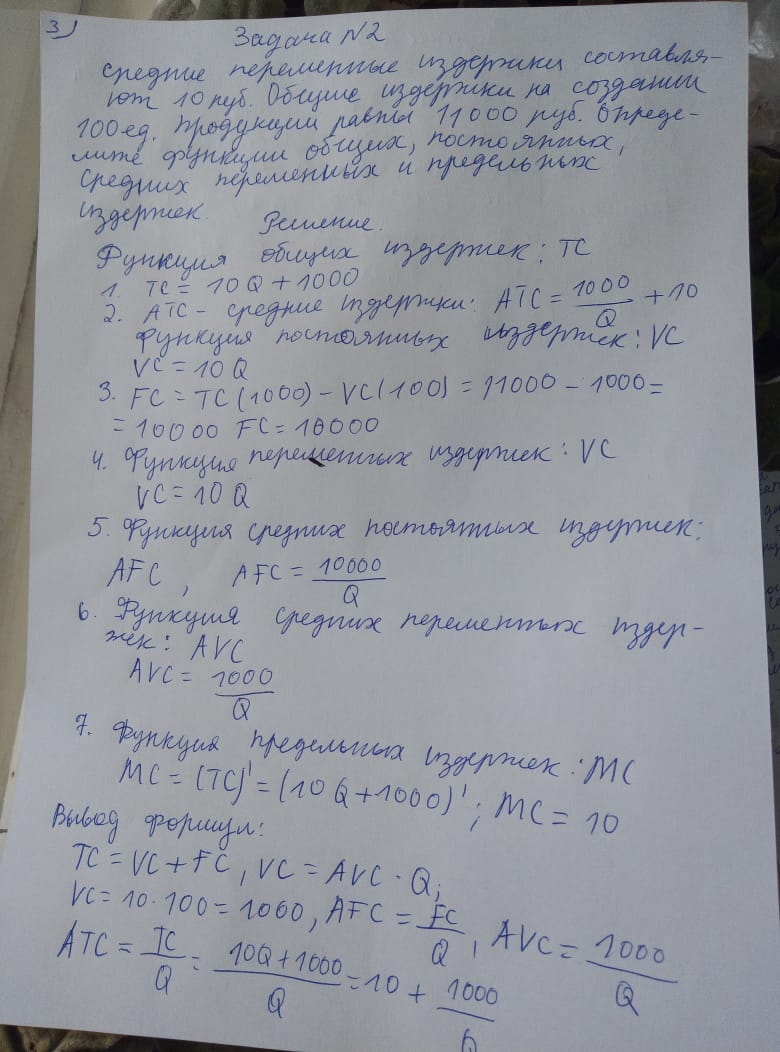 3)
Задача N2
Средние переменные издержки составля-
ют 10 руб. Общие издержки на создании
100 ед. продукции равны 11000 руб. Опреде-
лите функции общих, постоянных,
средних переменных и предельных
издержек.
Решение.
Функция общих издержек: TC
1. TC = 10Q + 1000
2. ATC - средние издержки: ATC = 1000/Q + 10
Функция постоянных издержек: VC
VC = 10 Q
3. FC = TC (1000) - VC (100) = 11000 - 1000 =
= 10000 FC = 10000
4. Функция переменных издержек: VC
VC = 10 Q
5. Функция средних постоянных издержек:
AFC, AFC = 10000/Q
6. Функция средних переменных издер-
жек: AVC
AVC = 1000/Q
7. Функция предельных издержек: MC
MC = (TC)' = (10Q + 1000)'; MC = 10
Вывод формул:
TC = VC + FC, VC = AVC · Q;
VC = 10 · 100 = 1000, AFC = FC/Q, AVC = 1000/Q
ATC = TC/Q = (10Q + 1000)/Q = 10 + 1000/Q